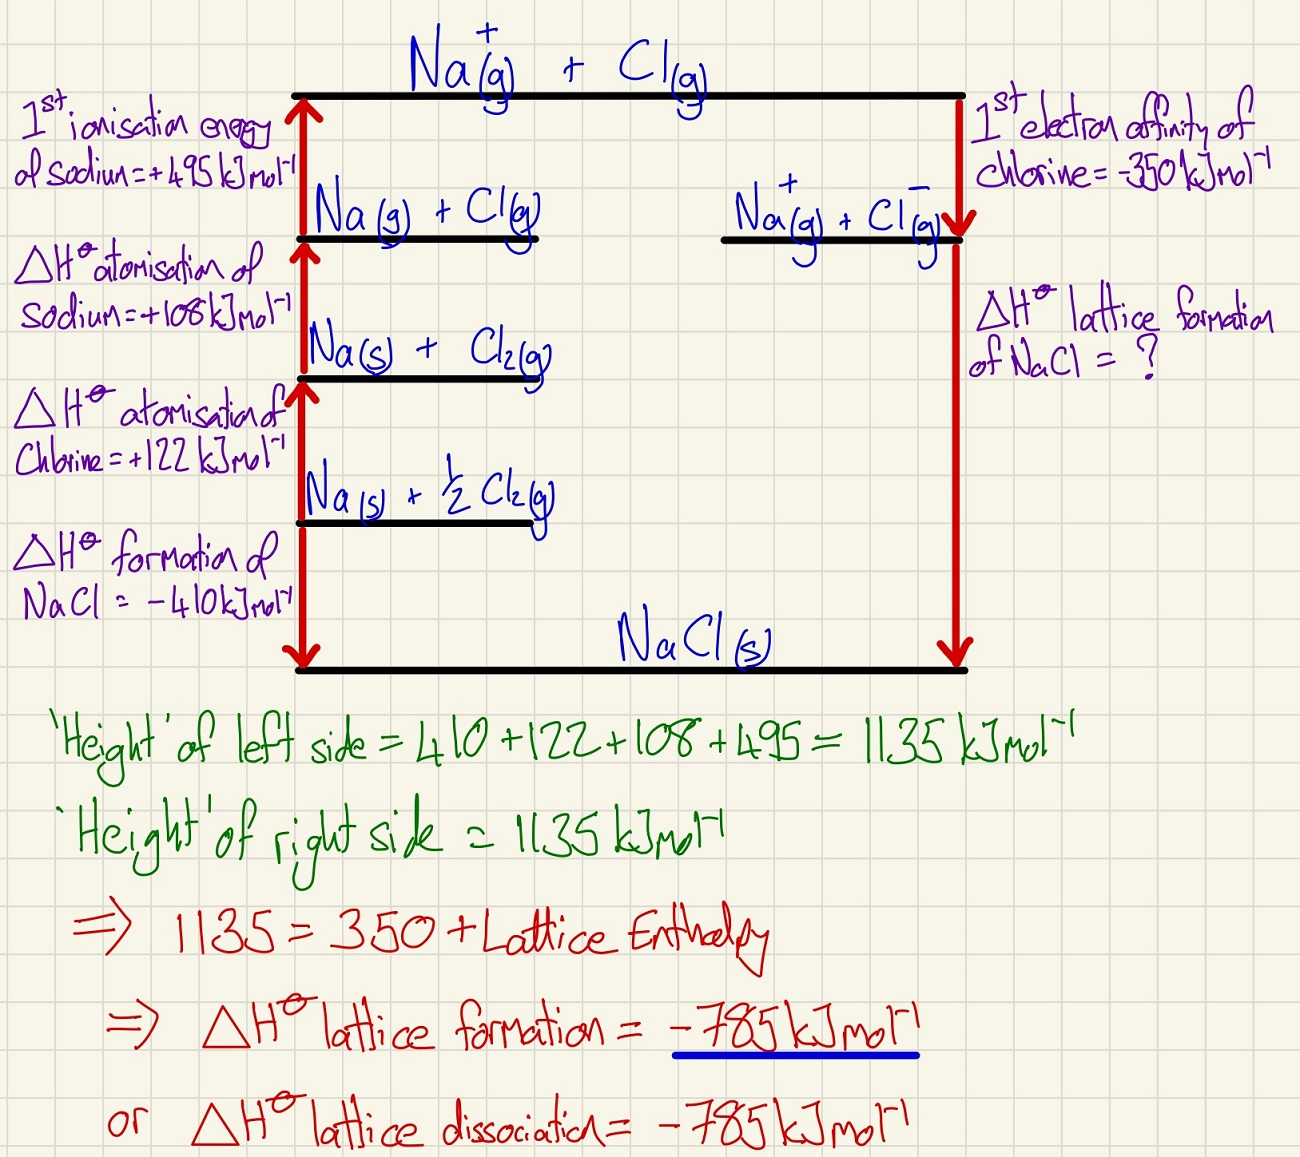 Na⁺(g) + Cl(g)
1st ionisation energy
of sodium = +495 kJ mol⁻¹
1st electron affinity of
chlorine = -350 kJ mol⁻¹
Na(g) + Cl(g)
Na⁺(g) + Cl⁻(g)
ΔH⊖ atomisation of
sodium = +108 kJ mol⁻¹
ΔH⊖ lattice formation
of NaCl = ?
Na(s) + Cl₂(g)
ΔH⊖ atomisation of
Chlorine = +122 kJ mol⁻¹
Na(s) + ½ Cl₂(g)
ΔH⊖ formation of
NaCl = -410 kJ mol⁻¹
NaCl(s)
'Height' of left side = 410 + 122 + 108 + 495 = 1135 kJ mol⁻¹
'Height' of right side = 1135 kJ mol⁻¹
⇒ 1135 = 350 + Lattice Enthalpy
⇒ ΔH⊖ lattice formation = -785 kJ mol⁻¹
or ΔH⊖ lattice dissociation = -785 kJ mol⁻¹